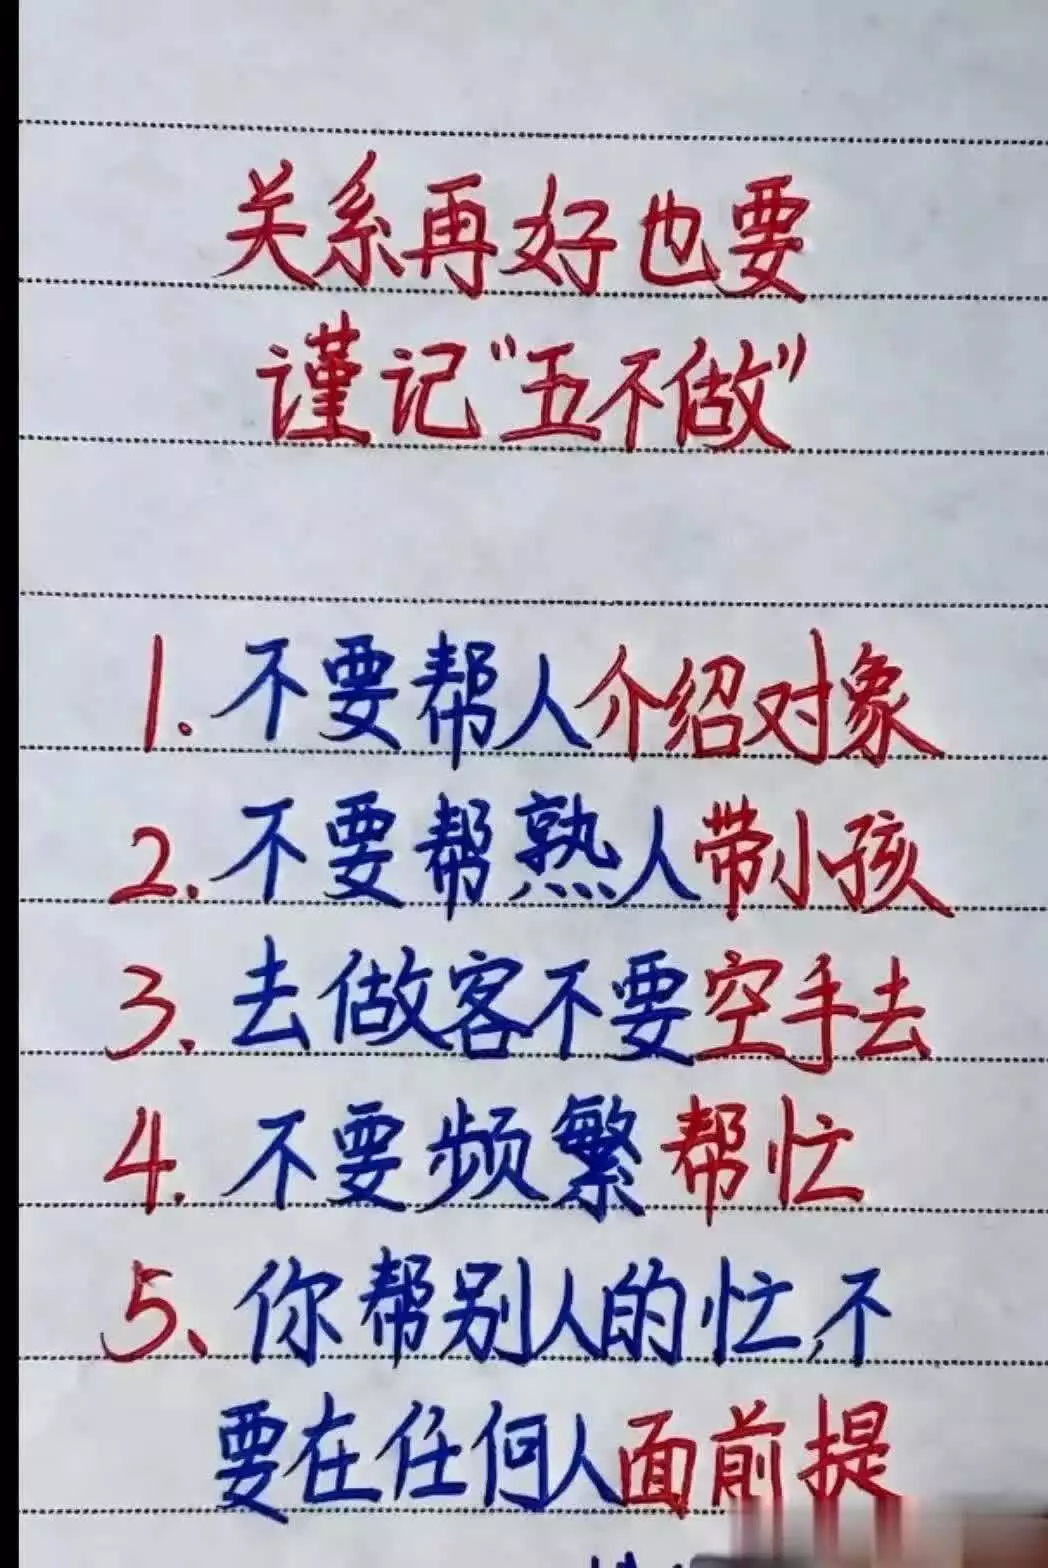 关系再好也要
谨记“五不做”
1.不要帮人介绍对象
2.不要帮熟人带小孩
3.去做客不要空手去
4.不要频繁帮忙
5、你帮别人的忙,不
要在任何人面前提